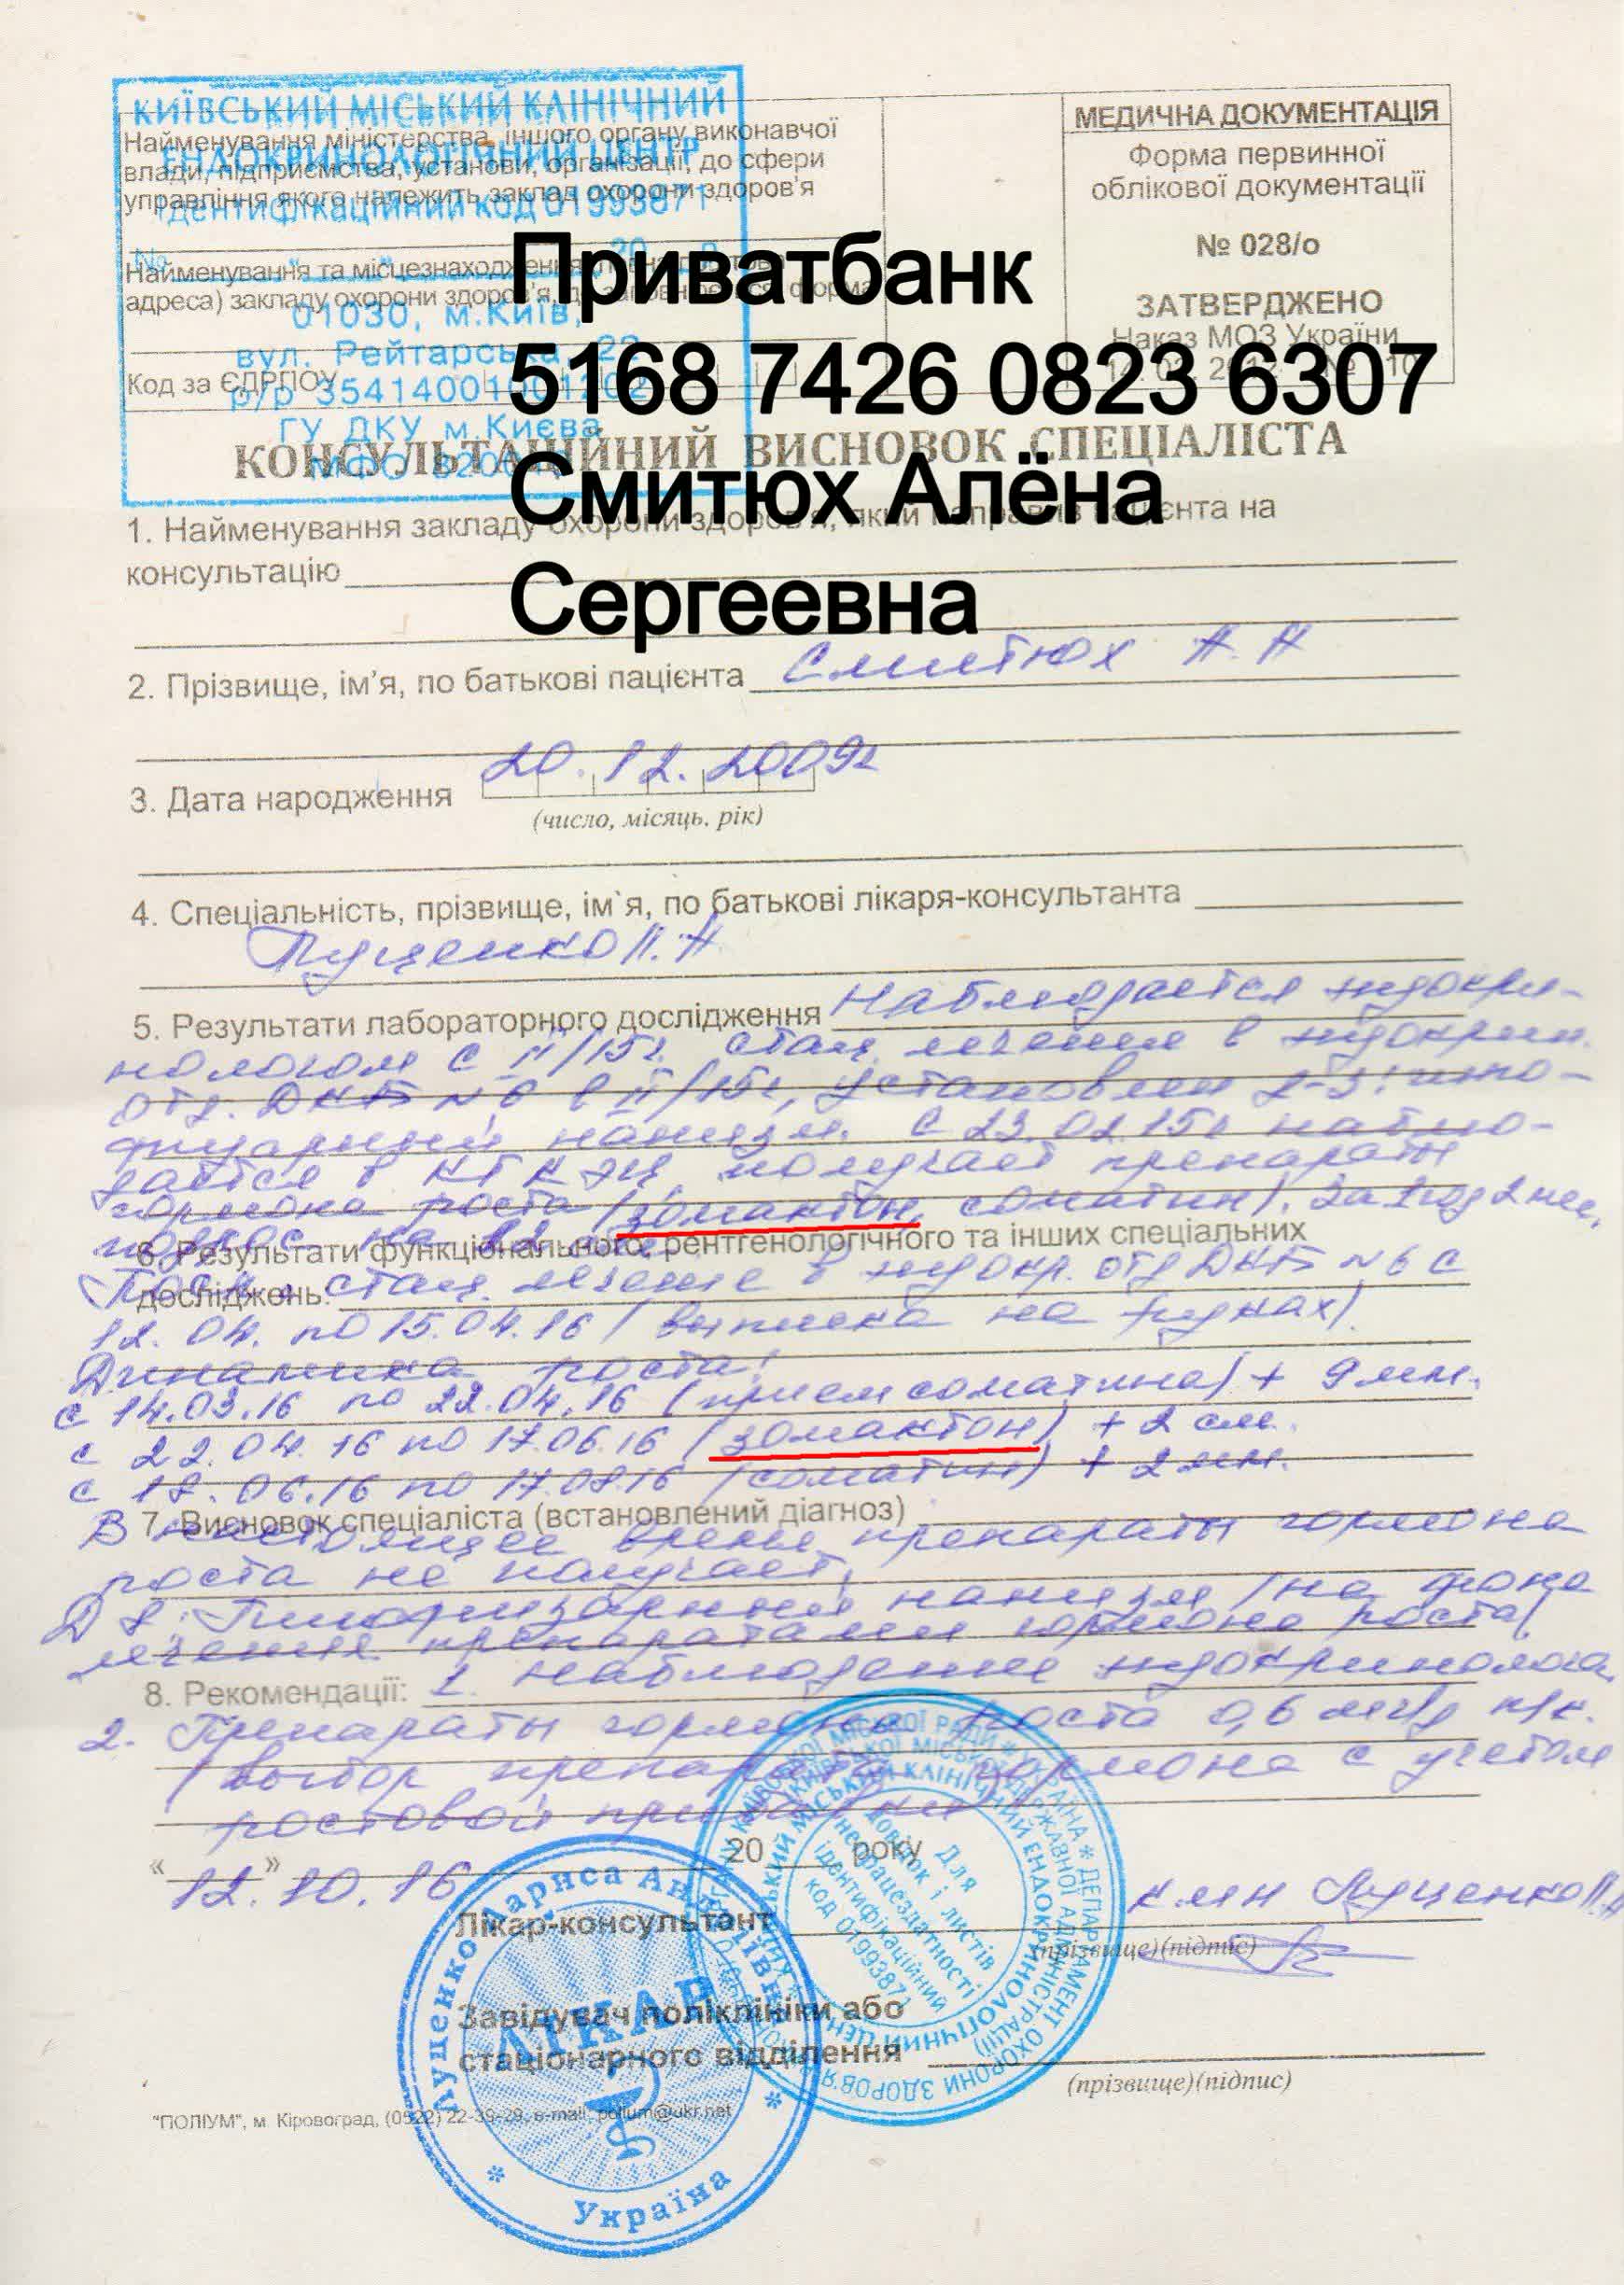 КИЇВСЬКИЙ МІСЬКИЙ КЛІНІЧНИЙ
ЕНДОКРИНОЛОГІЧНИЙ ЦЕНТР
Ідентифікаційний код 01993871
01030, м.Київ,
вул. Рейтарська, 22
ГУ ДКУ м.Києва
Найменування міністерства, іншого органу виконавчої
влади, підприємства, установи, організації, до сфери
управління якого належить заклад охорони здоров'я
Найменування та місцезнаходження
адреса) закладу охорони здоров'я, де заповнюється форма
Код за ЄДРПОУ
МЕДИЧНА ДОКУМЕНТАЦІЯ
Форма первинної
облікової документації
№ 028/о
ЗАТВЕРДЖЕНО
Наказ МОЗ України
Приватбанк
5168 7426 0823 6307
Смитюх Алёна
Сергеевна
КОНСУЛЬТАЦІЙНИЙ ВИСНОВОК СПЕЦІАЛІСТА
1. Найменування закладу охорони здоров'я, який направив пацієнта на
консультацію
2. Прізвище, ім'я, по батькові пацієнта Смитюх А. А
3. Дата народження 20.12.2009г
(число, місяць, рік)
4. Спеціальність, прізвище, ім`я, по батькові лікаря-консультанта
Луценко Л.А
5. Результати лабораторного дослідження Наблюдается эндокри-
нологом с II/15г. стац. лечение в эндокрин.
отд. ДКБ №6 в II/15г, установлен д-з: гипо-
физарный нанизм. С 23.02.15г наблю-
дается в КГКЭЦ, получает препараты
гормона роста (зомактон, соматин). За 1 год 2 мес.
6. Результати функціонального, рентгенологічного та інших спеціальних
досліджень.
стац. лечение в эндокр. отд ДКБ №6 с
12.04. по 15.04.16 (выписка на руках).
Динамика роста:
с 14.03.16 по 22.04.16 (прием соматина) + 9 мм.
с 22.04.16 по 17.06.16 (зомактон) + 2 см.
с 18.06.16 по 17.08.16 (соматин) + 2 мм.
7. Висновок спеціаліста (встановлений діагноз)
В настоящее время препараты гормона
роста не получает.
DS: Гипофизарный нанизм (на фоне
лечения препаратами гормона роста)
8. Рекомендації: 1. наблюдение эндокринолога
2. Препараты гормона роста 0,6 мг/д п/к.
(выбор препарата гормона с учетом
ростовой прибавки)
"12.10.16" 20 року
Лікар-консультант к.мн Луценко Л.А
(прізвище)(підпис)
Завідувач поліклініки або
стаціонарного відділення
(прізвище)(підпис)
Луценко Лариса Андріївна
ЛІКАР
Україна
Для
довідок і листів
непрацездатності
ідентифікаційний
код 01993871
"ПОЛІУМ", м. Кіровоград, (0522) 22-39-29, e-mail: polium@ukr.net